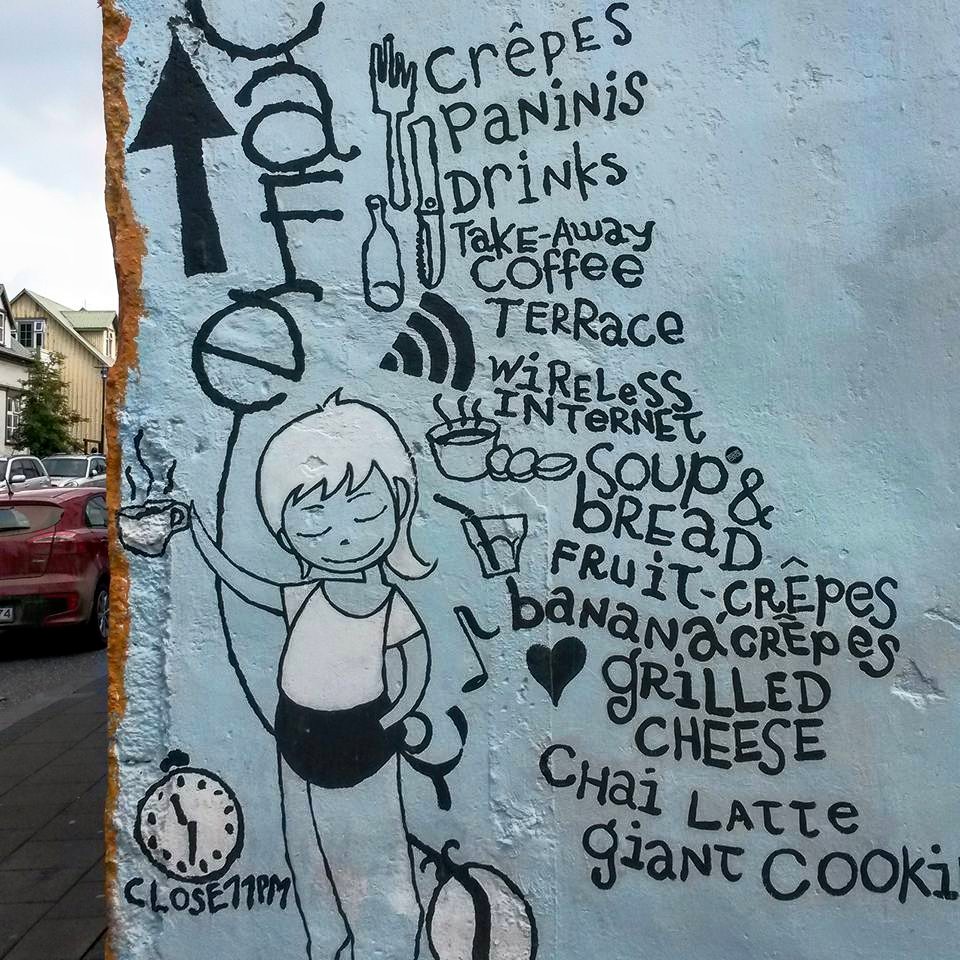 Café
Crêpes
Paninis
Drinks
Take-Away
Coffee
Terrace
Wireless
Internet
Soup &
Bread
Fruit-Crêpes
banana crêpes
grilled
Cheese
Chai Latte
giant Cooki
CLOSE 11PM